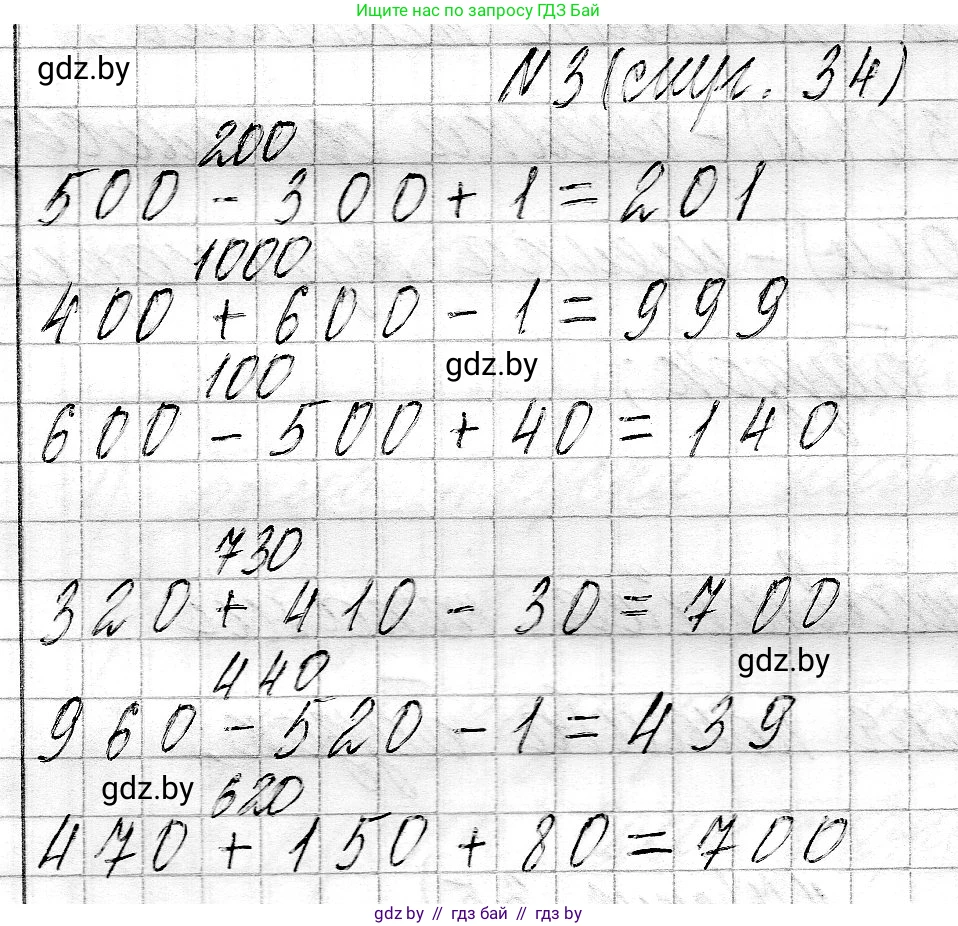 Ищите нас по запросу ГДЗ Бай
gdz.by
N3 (стр. 34)
200
500 - 300 + 1 = 201
1000
400 + 600 - 1 = 999
gdz.by
100
600 - 500 + 40 = 140
730
320 + 410 - 30 = 700
gdz.by
440
960 - 520 - 1 = 439
gdz.by
620
470 + 150 + 80 = 700
gdz.by // гдз бай // гдз by